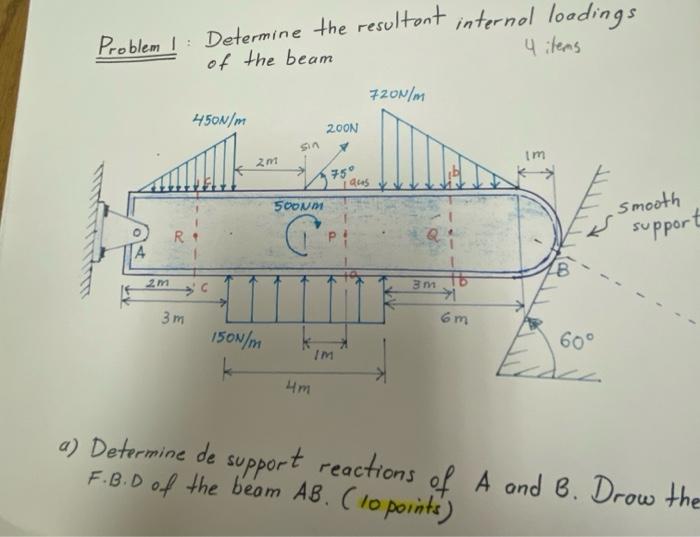 Problem 1 : Determine the resultant internal loadings
of the beam
4 items
720N/m
450N/m
200N
sin
2m
75°
1m
c
a
cos
b
500Nm
smooth
support
R
P
Q
A
B
2m
c
a
3m
b
3m
6m
150N/m
1m
60°
4m
a) Determine de support reactions of A and B. Drow the
F.B.D of the beam AB. (10 points)